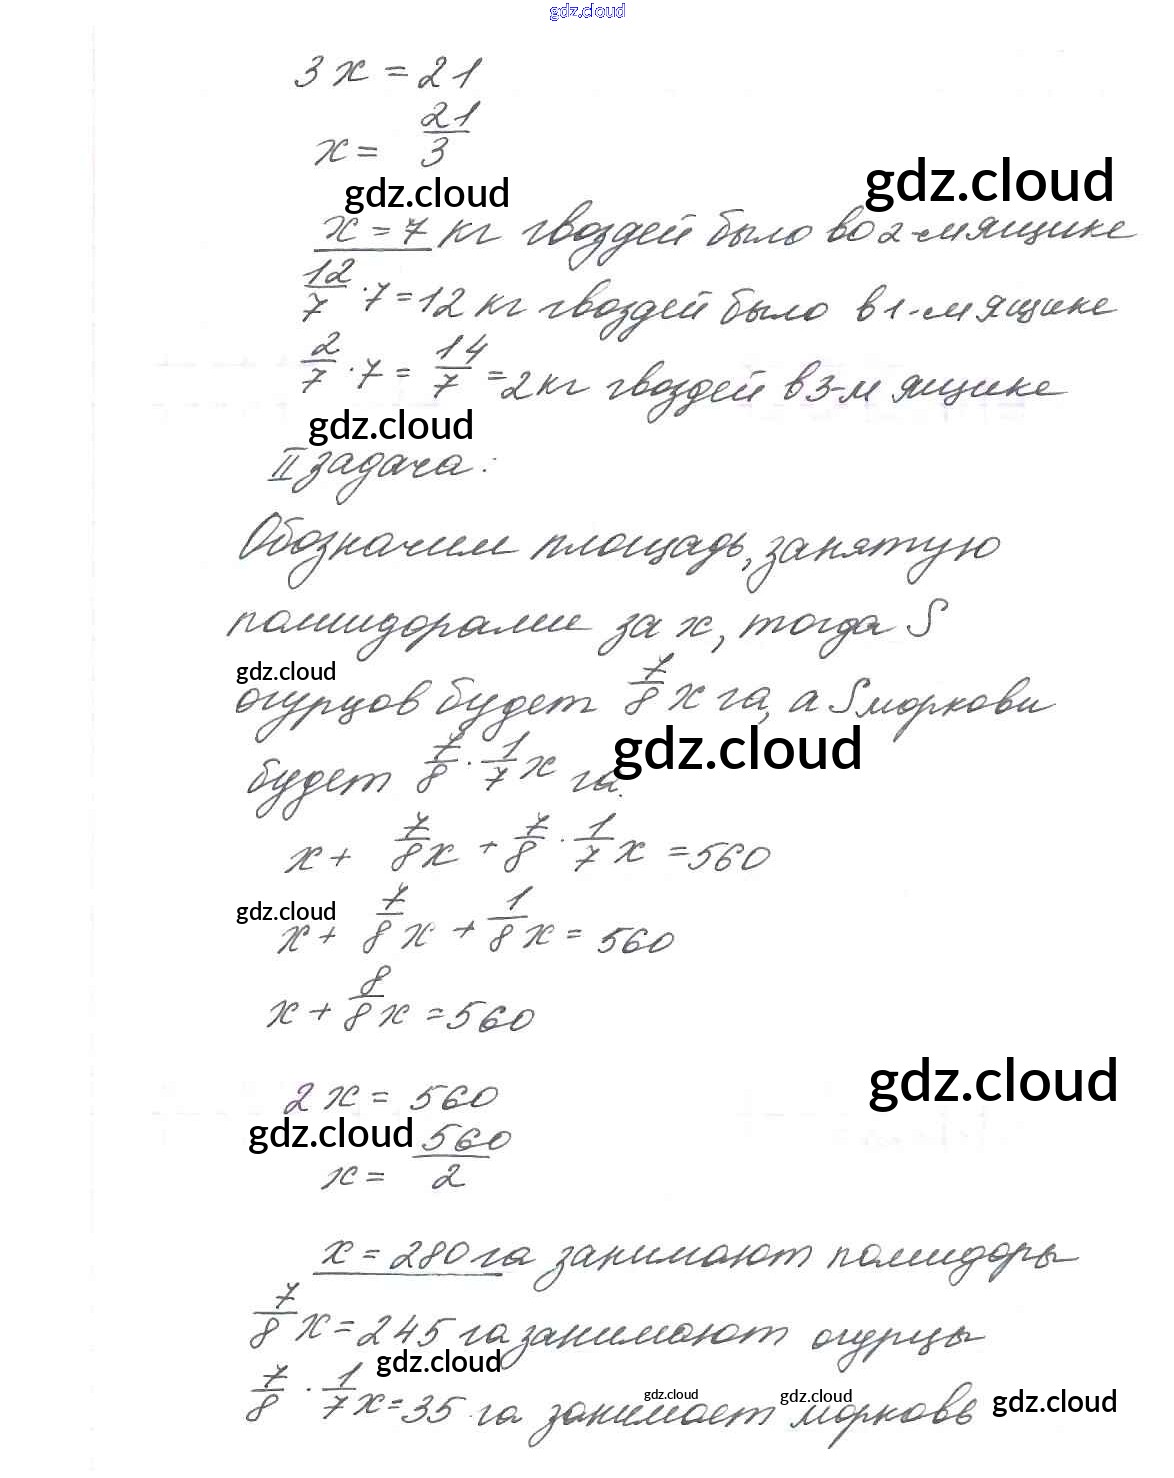 gdz.cloud
3x = 21
x = 21/3
gdz.cloud
gdz.cloud
x = 7 кг гвоздей было во 2-м ящике
12/7 · 7 = 12 кг гвоздей было в 1-м ящике
2/7 · 7 = 14/7 = 2 кг гвоздей в 3-м ящике
gdz.cloud
II задача:
Обозначим площадь, занятую
помидорами за x, тогда S
gdz.cloud
огурцов будет 7/8 x га, а S моркови
gdz.cloud
будет 7/8 · 1/7 x га.
x + 7/8 x + 7/8 · 1/7 x = 560
gdz.cloud
x + 7/8 x + 1/8 x = 560
x + 8/8 x = 560
gdz.cloud
2x = 560
gdz.cloud
x = 560/2
x = 280 га занимают помидоры
7/8 x = 245 га занимают огурцы
gdz.cloud
7/8 · 1/7 x = 35 га занимает морковь
gdz.cloud
gdz.cloud
gdz.cloud